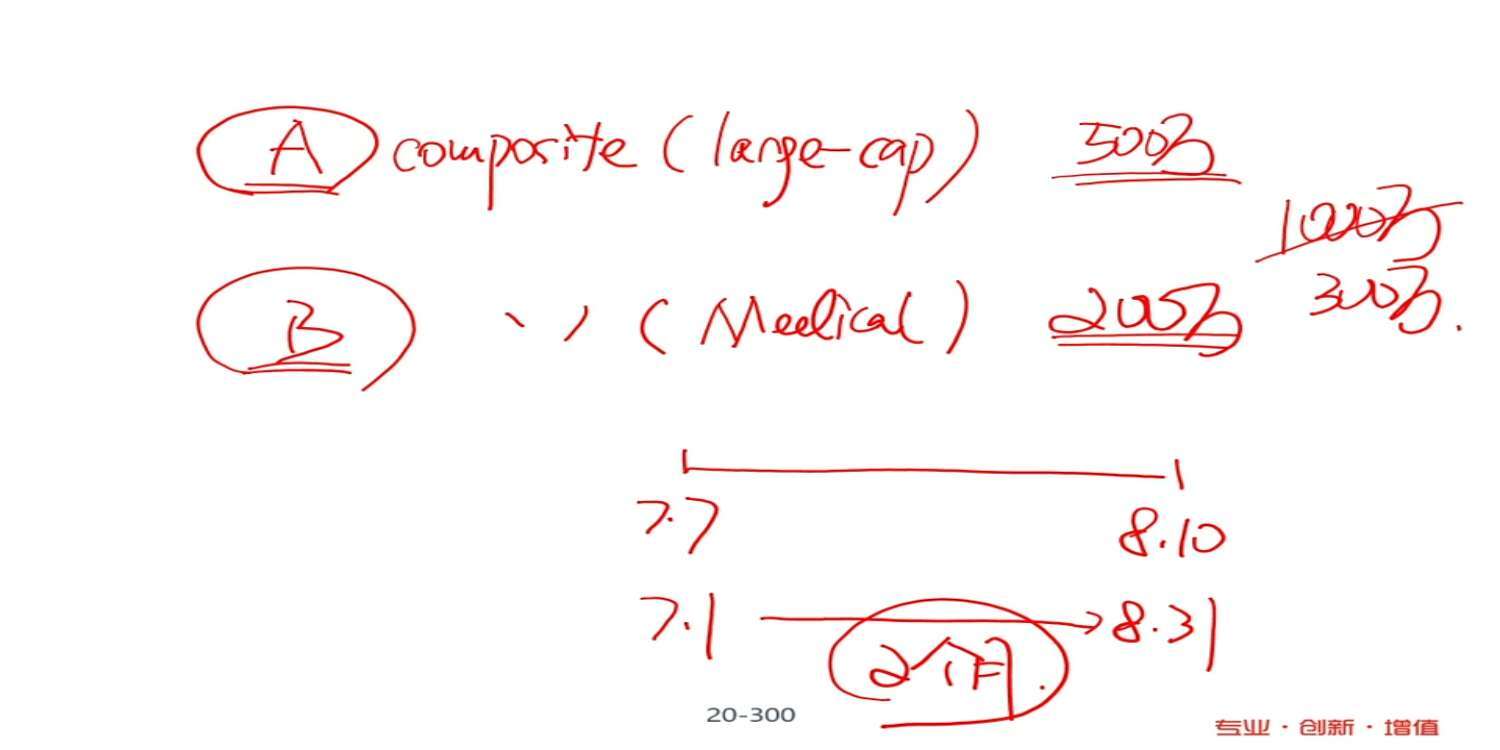 A composite (large-cap) 500万
1000万
B 、、 (Medical) 200万
300万.
7.7 8.10
7.1 → 8.31
2个月.
20-300
专业·创新·增值